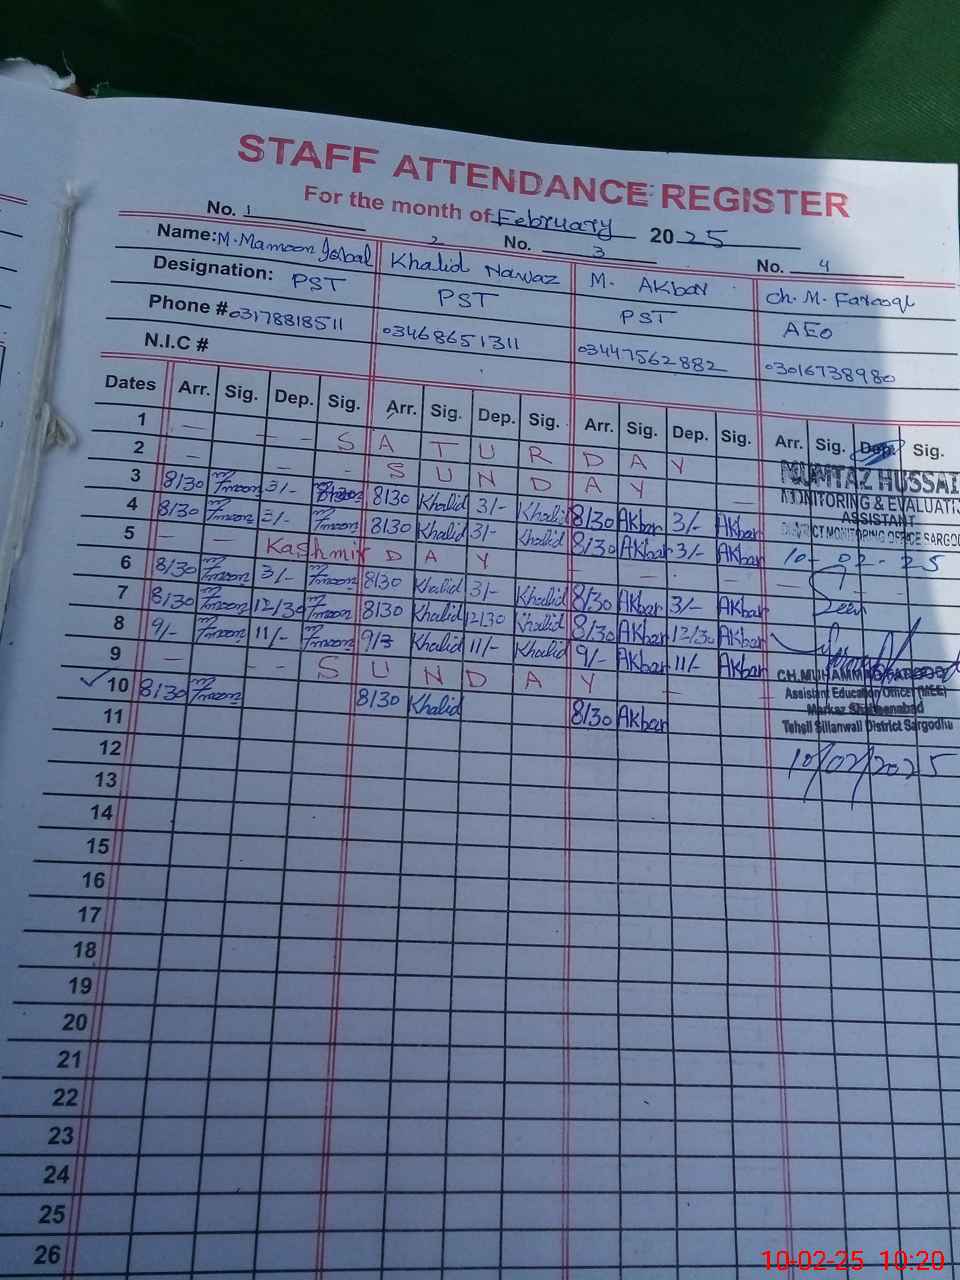 STAFF ATTENDANCE REGISTER
For the month of February 2025
No. 1 2 No. 3 No. 4
Name: M. Mamoon Iqbal Khalid Nawaz M. Akbar Ch. M. Farooq
Designation: PST PST PST AEO
Phone # 03178818511 03468651311 03447562882 03016738980
N.I.C #
Dates Arr. Sig. Dep. Sig. Arr. Sig. Dep. Sig. Arr. Sig. Dep. Sig. Arr. Sig. Dep. Sig.
1 — — - S A T U R D A Y
2 - - - S U N D A Y —
3 8/30 3/- 8/30 Khalid 3/- Khalid 8/30 Akbar 3/- Akbar
4 8/30 3/- 8/30 Khalid 3/- Khalid 8/30 Akbar 3/- Akbar
5 - - Kashmir D A Y - - - -
6 8/30 3/- 8/30 Khalid 3/- Khalid 8/30 Akbar 3/- Akbar
7 8/30 12/30 8/30 Khalid 12/30 Khalid 8/30 Akbar 12/30 Akbar
8 9/- 11/- 9/- Khalid 11/- Khalid 9/- Akbar 11/- Akbar
9 — - - S U N D A Y - -
✓ 10 8/30 8/30 Khalid 8/30 Akbar
11
12
13
14
15
16
17
18
19
20
21
22
23
24
25
26
MUMTAZ HUSSAI
MONITORING & EVALUATI
ASSISTANT
DISTRICT MONITORING OFFICE SARGO
10-02-25
Seen
CH. MUHAMMAD FAROOQ
Assistant Education Officer (MEE)
Markaz Shaheenabad
Tehsil Sillanwali District Sargodha
10/02/2025
10-02-25 10:20